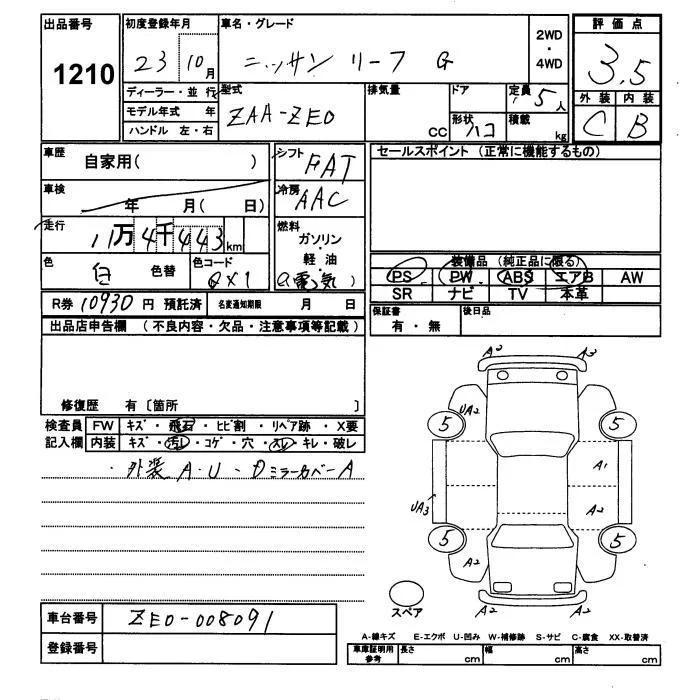 出品番号
1210
初度登録年月
23 10月
車名・グレード
ニッサン リーフ G
2WD
・
4WD
評価点
3.5
外装 内装
C B
ディーラー・並行
モデル年式 年
ハンドル 左・右
型式
ZAA-ZE0
排気量
CC
ドア
定員
5人
形状
ハコ
積載
kg
車歴
自家用( )
シフト
FAT
セールスポイント (正常に機能するもの)
車検
年 月( 日)
冷房
AAC
走行
11万4千443km
燃料
ガソリン
・
軽油
電気
色
白
色替
色コード
QX1
装備品 (純正品に限る)
PS PW ABS エアB AW
SR ナビ TV 本革
R券 10930 円 預託済
名変通知期限 月 日
保証書
有・無
後日品
出品店申告欄 (不良内容・欠品・注意事項等記載)
修復歴 有〔箇所 〕
検査員
記入欄
FW キズ・飛石・ヒビ割・リペア跡・X要
内装 キズ・汚レ・コゲ・穴・スレ・キレ・破レ
・外装 A・U ・Dミラーカバー A
A2 A3
UA2
5 5
A1
UA3
A2
5 5
A2
A2 A2
スペア
車台番号
ZE0-008091
登録番号
A-線キズ E-エクボ U-凹み W-補修跡 S-サビ C-腐食 XX-取替済
車庫証明用
参考
長さ cm 幅 cm 高さ cm